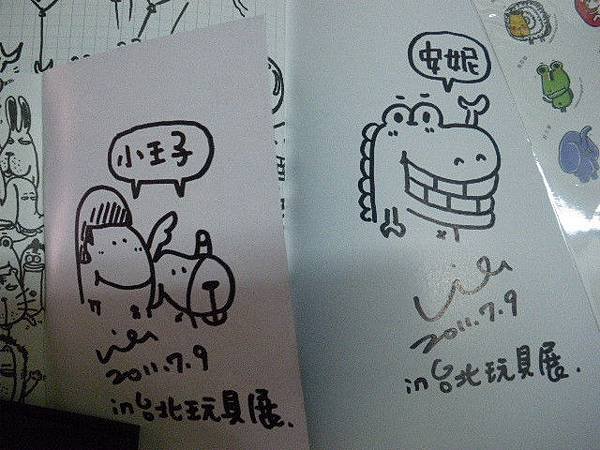 小王子
2011.7.9
in 台北玩具展.
安妮
2011.7.9
in 台北玩具展.